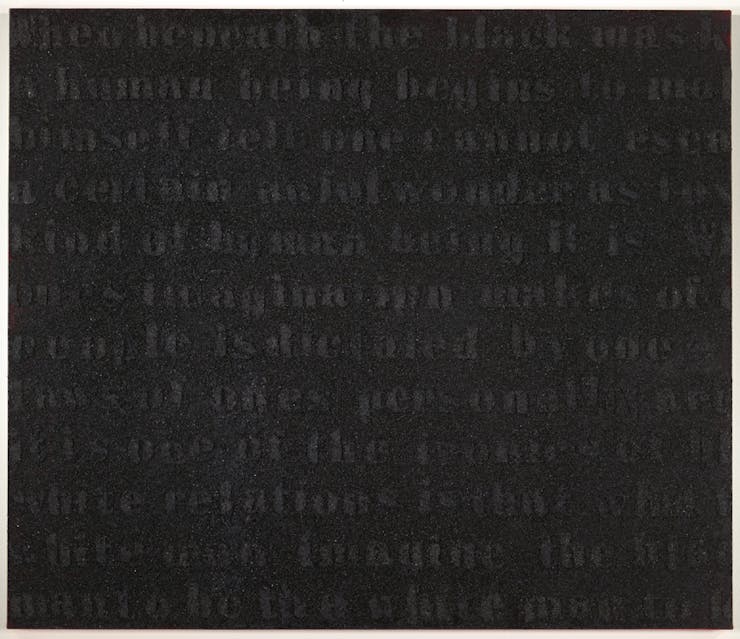 When beneath the black mask
a human being begins to mak
himself felt one cannot escap
a certain awful wonder as to
kind of human being it is Wh
ones imagination makes of
people is dictated by ones
laws of ones personality and
it is one of the ironies of
white relations is that what
white man imagine the blac
man to be the white man